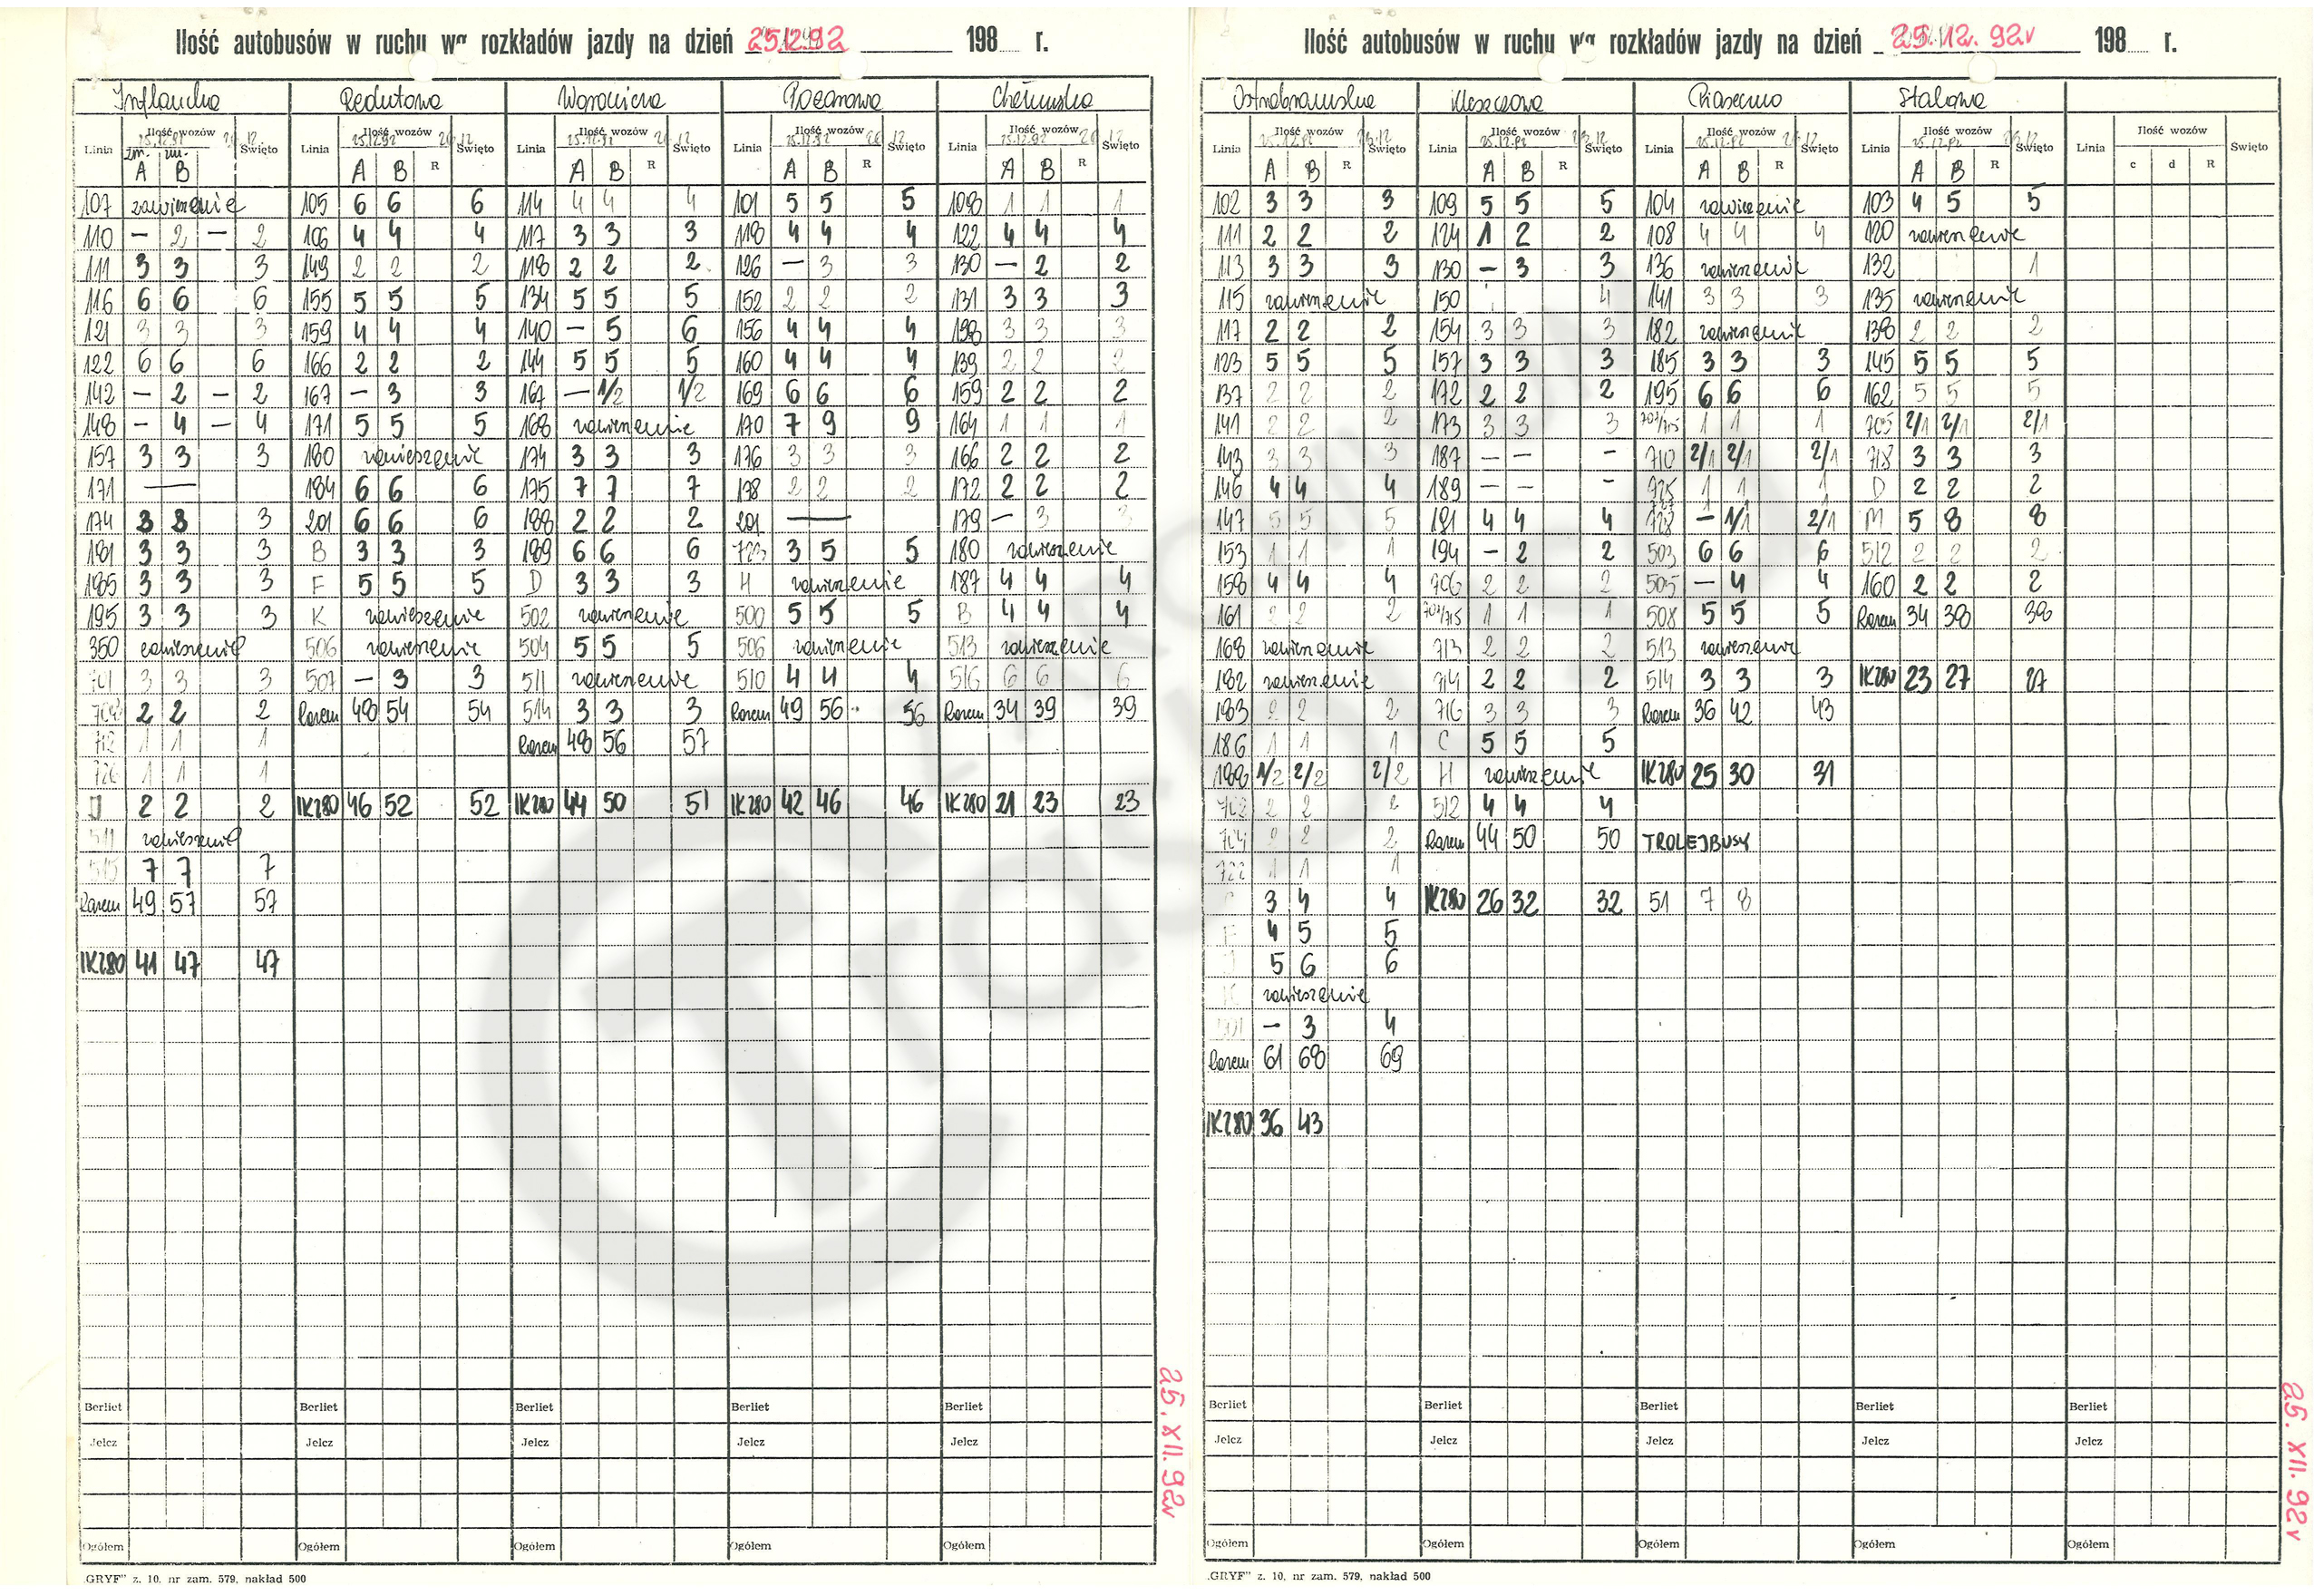 Ilość autobusów w ruchu wg rozkładów jazdy na dzień 25.12.92 198 r.
Inflancka Redutowa Woronicza Pożarowa Chełmska
Linia Ilość wozów Święto Linia Ilość wozów Święto Linia Ilość wozów Święto Linia Ilość wozów Święto Linia Ilość wozów Święto
zm. zm.
A B A B R A B R A B R A B R
107 zawieszenie 105 6 6 6 114 4 4 4 101 5 5 5 108 1 1 1
110 – 2 – 2 106 4 4 4 117 3 3 3 118 4 4 4 122 4 4 4
111 3 3 3 149 2 2 2 118 2 2 2 126 – 3 3 130 – 2 2
116 6 6 6 155 5 5 5 134 5 5 5 152 2 2 2 131 3 3 3
121 3 3 3 159 4 4 4 140 – 5 6 156 4 4 4 138 3 3 3
122 6 6 6 166 2 2 2 144 5 5 5 160 4 4 4 139 2 2 2
142 – 2 – 2 167 – 3 3 167 – 1/2 1/2 169 6 6 6 159 2 2 2
148 – 4 – 4 171 5 5 5 168 zawieszenie 170 7 9 9 164 1 1 1
157 3 3 3 180 zawieszenie 174 3 3 3 176 3 3 3 166 2 2 2
171 — 184 6 6 6 175 7 7 7 178 2 2 2 172 2 2 2
174 3 3 3 201 6 6 6 188 2 2 2 201 — 179 – 3 3
181 3 3 3 B 3 3 3 189 6 6 6 723 3 5 5 180 zawieszenie
185 3 3 3 F 5 5 5 D 3 3 3 H zawieszenie 187 4 4 4
195 3 3 3 K zawieszenie 502 zawieszenie 500 5 5 5 B 4 4 4
350 zawieszenie 506 zawieszenie 504 5 5 5 506 zawieszenie 513 zawieszenie
701 3 3 3 507 – 3 3 511 zawieszenie 510 4 4 4 516 6 6 6
2 2 2 Razem 48 54 54 514 3 3 3 Razem 49 56 56 Razem 34 39 39
712 1 1 1 Razem 48 56 57
726 1 1 1
J 2 2 2 IK280 46 52 52 IK280 44 50 51 IK280 42 46 46 IK280 21 23 23
511 zawieszenie
515 7 7 7
Razem 49 57 57
IK280 41 47 47
Berliet Berliet Berliet Berliet Berliet
Jelcz Jelcz Jelcz Jelcz Jelcz
Ogółem Ogółem Ogółem Ogółem Ogółem
„GRYF" z. 10, nr zam. 579, nakład 500
25. XII. 92r
Ilość autobusów w ruchu wg rozkładów jazdy na dzień 25.12.92r 198 r.
Ostrobramska Kleszczowa Piaseczno Stalowa
Linia Ilość wozów Święto Linia Ilość wozów Święto Linia Ilość wozów Święto Linia Ilość wozów Święto Linia Ilość wozów Święto
A B R A B R A B R A B R c d R
102 3 3 3 109 5 5 5 104 zawieszenie 103 4 5 5
111 2 2 2 124 1 2 2 108 4 4 4 120 zawieszenie
113 3 3 3 130 – 3 3 136 zawieszenie 132 1
115 zawieszenie 150 4 141 3 3 3 135 zawieszenie
117 2 2 2 154 3 3 3 182 zawieszenie 138 2 2 2
123 5 5 5 157 3 3 3 185 3 3 3 145 5 5 5
137 2 2 2 172 2 2 2 195 6 6 6 162 5 5 5
141 2 2 2 173 3 3 3 707/715 1 1 1 705 2/1 2/1 2/1
143 3 3 3 187 – – – 710 2/1 2/1 2/1 718 3 3 3
146 4 4 4 189 – – – 725 1 1 1 D 2 2 2
147 5 5 5 191 4 4 4 728 – 1/1 2/1 M 5 8 8
153 1 1 1 194 – 2 2 503 6 6 6 512 2 2 2
158 4 4 4 706 2 2 2 505 – 4 4 160 2 2 2
161 2 2 2 707/715 1 1 1 508 5 5 5 Razem 34 38 38
168 zawieszenie 713 2 2 2 513 zawieszenie
182 zawieszenie 714 2 2 2 514 3 3 3 IK280 23 27 27
183 2 2 2 716 3 3 3 Razem 36 42 43
186 1 1 1 C 5 5 5
188 1/2 2/2 2/2 H zawieszenie IK280 25 30 31
702 2 2 2 512 4 4 4
704 2 2 2 Razem 44 50 50 TROLEJBUSY
722 1 1 1
C 3 4 4 IK280 26 32 32 51 7 8
F 4 5 5
J 5 6 6
K zawieszenie
501 – 3 4
Razem 61 68 69
IK280 36 43
Berliet Berliet Berliet Berliet Berliet
Jelcz Jelcz Jelcz Jelcz Jelcz
Ogółem Ogółem Ogółem Ogółem Ogółem
„GRYF" z. 10, nr zam. 579, nakład 500
25. XII. 92r